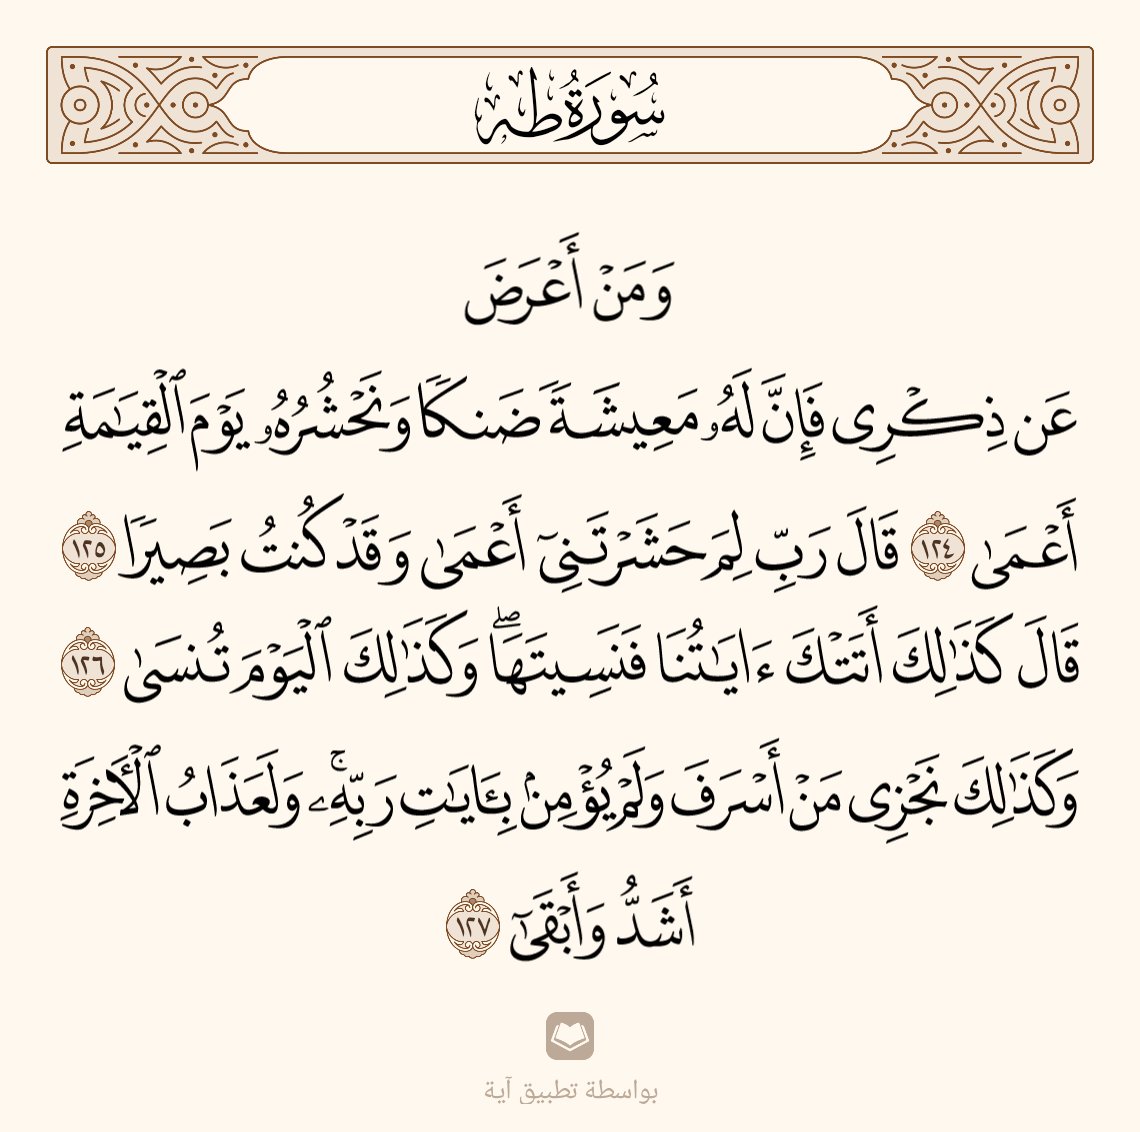 سُورَةُ طه
وَمَنْ أَعْرَضَ
عَن ذِكْرِى فَإِنَّ لَهُۥ مَعِيشَةً ضَنكًا وَنَحْشُرُهُۥ يَوْمَ ٱلْقِيَـٰمَةِ
أَعْمَىٰ ١٢٤ قَالَ رَبِّ لِمَ حَشَرْتَنِىٓ أَعْمَىٰ وَقَدْ كُنتُ بَصِيرًا ١٢٥
قَالَ كَذَٰلِكَ أَتَتْكَ ءَايَـٰتُنَا فَنَسِيتَهَا ۖ وَكَذَٰلِكَ ٱلْيَوْمَ تُنسَىٰ ١٢٦
وَكَذَٰلِكَ نَجْزِى مَنْ أَسْرَفَ وَلَمْ يُؤْمِنۢ بِـَٔايَـٰتِ رَبِّهِۦ ۚ وَلَعَذَابُ ٱلْـَٔاخِرَةِ
أَشَدُّ وَأَبْقَىٰٓ ١٢٧
بواسطة تطبيق آية